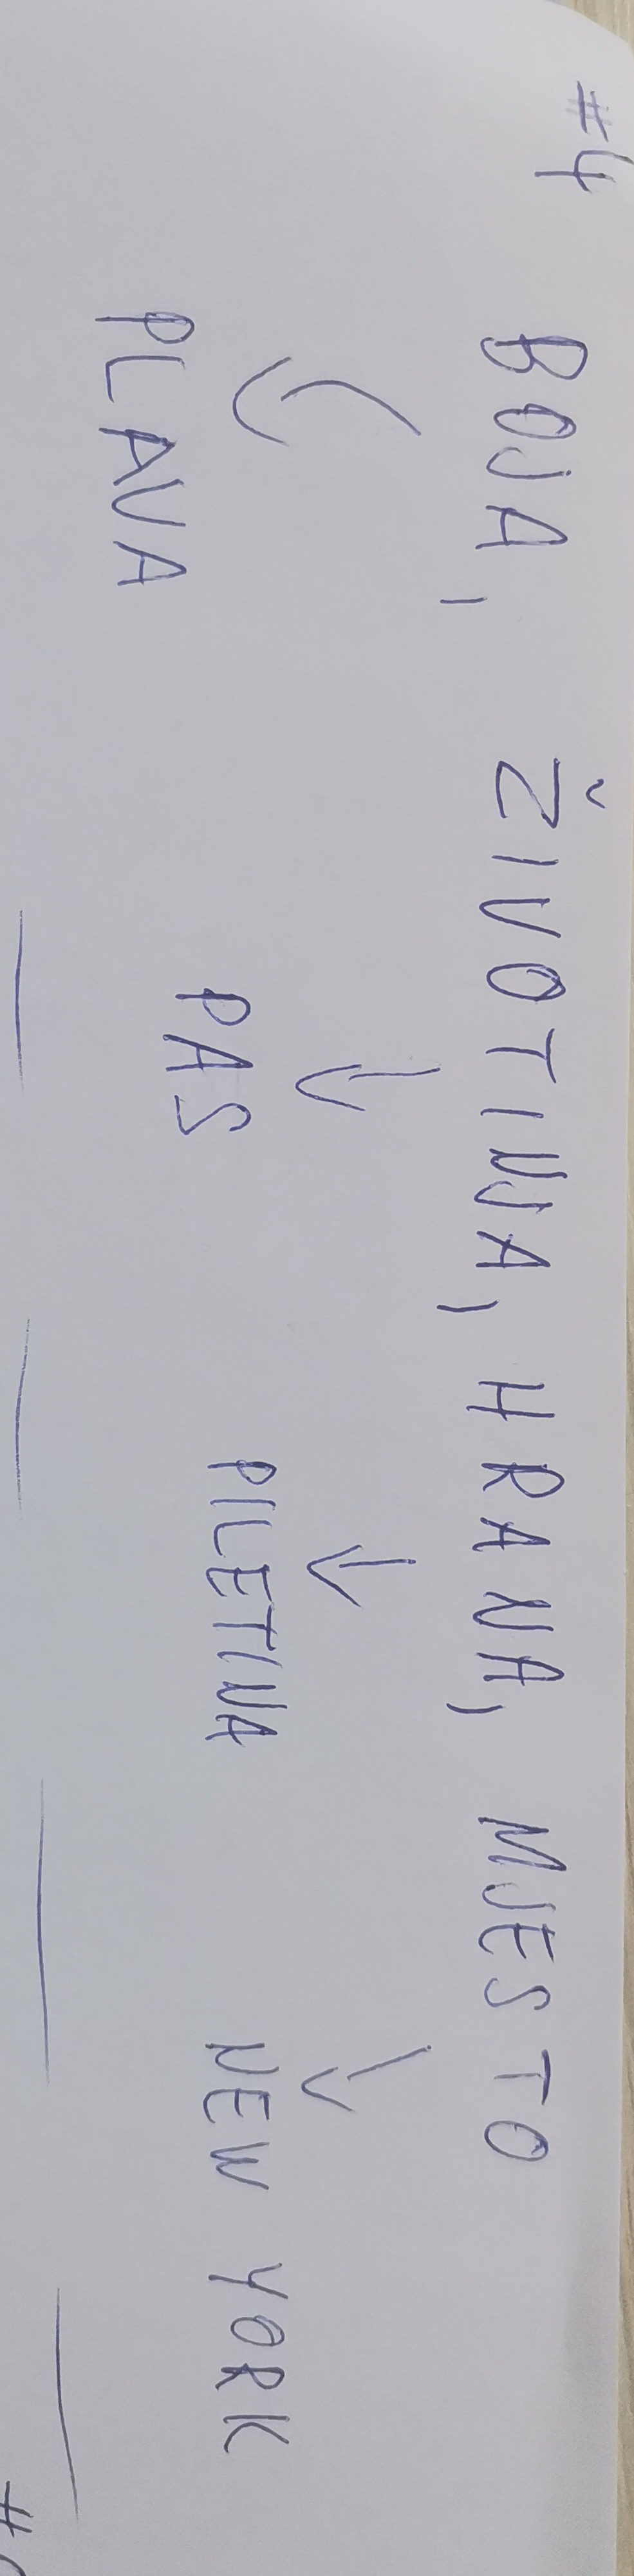 #4 BOJA, ŽIVOTINJA, HRANA, MJESTO
PLAVA PAS PILETINA NEW YORK
#